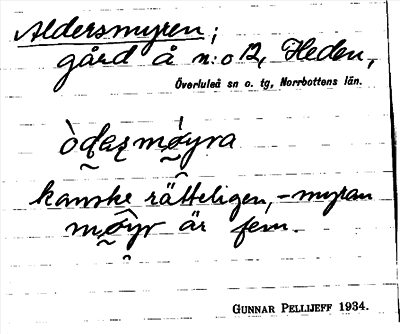 Aldersmyren;
gård å n:o 12, Heden,
Överluleå sn o. tg, Norrbottens län.
kanske rätteligen, -myran
är fem.
GUNNAR PELLIJEFF 1934.